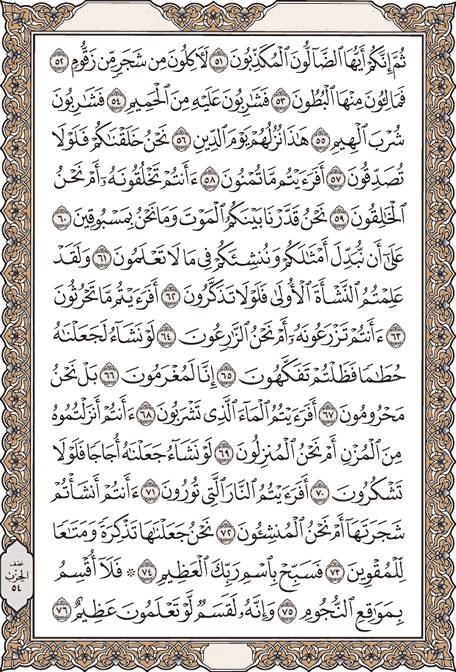 ثُمَّ إِنَّكُمْ أَيُّهَا ٱلضَّآلُّونَ ٱلْمُكَذِّبُونَ ٥١ لَأٓكِلُونَ مِن شَجَرٍ مِّن زَقُّومٍ ٥٢
فَمَالِـُٔونَ مِنْهَا ٱلْبُطُونَ ٥٣ فَشَٰرِبُونَ عَلَيْهِ مِنَ ٱلْحَمِيمِ ٥٤ فَشَٰرِبُونَ
شُرْبَ ٱلْهِيمِ ٥٥ هَٰذَا نُزُلُهُمْ يَوْمَ ٱلدِّينِ ٥٦ نَحْنُ خَلَقْنَٰكُمْ فَلَوْلَا
تُصَدِّقُونَ ٥٧ أَفَرَءَيْتُم مَّا تُمْنُونَ ٥٨ ءَأَنتُمْ تَخْلُقُونَهُۥٓ أَمْ نَحْنُ
ٱلْخَٰلِقُونَ ٥٩ نَحْنُ قَدَّرْنَا بَيْنَكُمُ ٱلْمَوْتَ وَمَا نَحْنُ بِمَسْبُوقِينَ ٦٠
عَلَىٰٓ أَن نُّبَدِّلَ أَمْثَٰلَكُمْ وَنُنشِئَكُمْ فِى مَا لَا تَعْلَمُونَ ٦١ وَلَقَدْ
عَلِمْتُمُ ٱلنَّشْأَةَ ٱلْأُولَىٰ فَلَوْلَا تَذَكَّرُونَ ٦٢ أَفَرَءَيْتُم مَّا تَحْرُثُونَ
٦٣ ءَأَنتُمْ تَزْرَعُونَهُۥٓ أَمْ نَحْنُ ٱلزَّٰرِعُونَ ٦٤ لَوْ نَشَآءُ لَجَعَلْنَٰهُ
حُطَٰمًا فَظَلْتُمْ تَفَكَّهُونَ ٦٥ إِنَّا لَمُغْرَمُونَ ٦٦ بَلْ نَحْنُ
مَحْرُومُونَ ٦٧ أَفَرَءَيْتُمُ ٱلْمَآءَ ٱلَّذِى تَشْرَبُونَ ٦٨ ءَأَنتُمْ أَنزَلْتُمُوهُ
مِنَ ٱلْمُزْنِ أَمْ نَحْنُ ٱلْمُنزِلُونَ ٦٩ لَوْ نَشَآءُ جَعَلْنَٰهُ أُجَاجًا فَلَوْلَا
تَشْكُرُونَ ٧٠ أَفَرَءَيْتُمُ ٱلنَّارَ ٱلَّتِى تُورُونَ ٧١ ءَأَنتُمْ أَنشَأْتُمْ
شَجَرَتَهَآ أَمْ نَحْنُ ٱلْمُنشِـُٔونَ ٧٢ نَحْنُ جَعَلْنَٰهَا تَذْكِرَةً وَمَتَٰعًا
لِّلْمُقْوِينَ ٧٣ فَسَبِّحْ بِٱسْمِ رَبِّكَ ٱلْعَظِيمِ ٧٤ ۞ فَلَآ أُقْسِمُ
بِمَوَٰقِعِ ٱلنُّجُومِ ٧٥ وَإِنَّهُۥ لَقَسَمٌ لَّوْ تَعْلَمُونَ عَظِيمٌ ٧٦
نصف
الحزب
٥٤